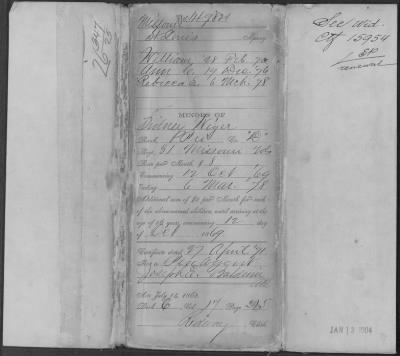 Missouri
St Louis
Agency
William, 28 Feb. 72
Ann C. 14 Dec 76
Rebecca E. 6 Mch. 78
MINORS OF
Sidney
Rank Co. "D"
Regt. 31 Missouri Vols
Rate per Month $ 8
Commencing 12 Oct 69
Ending 6 Mar. 78
Additional sum of $2 per Month for each
of the above-named children, until arriving at the
age of 16 years, commencing 12 day
of Oct 1869
Certificate dated 27 April 71
Joseph E. Baldwin
Act July 14 1862
Book E Vol. 17 Page 265
Clerk
See Wid.
Ctf 15954
renewal
JAN 13 1904